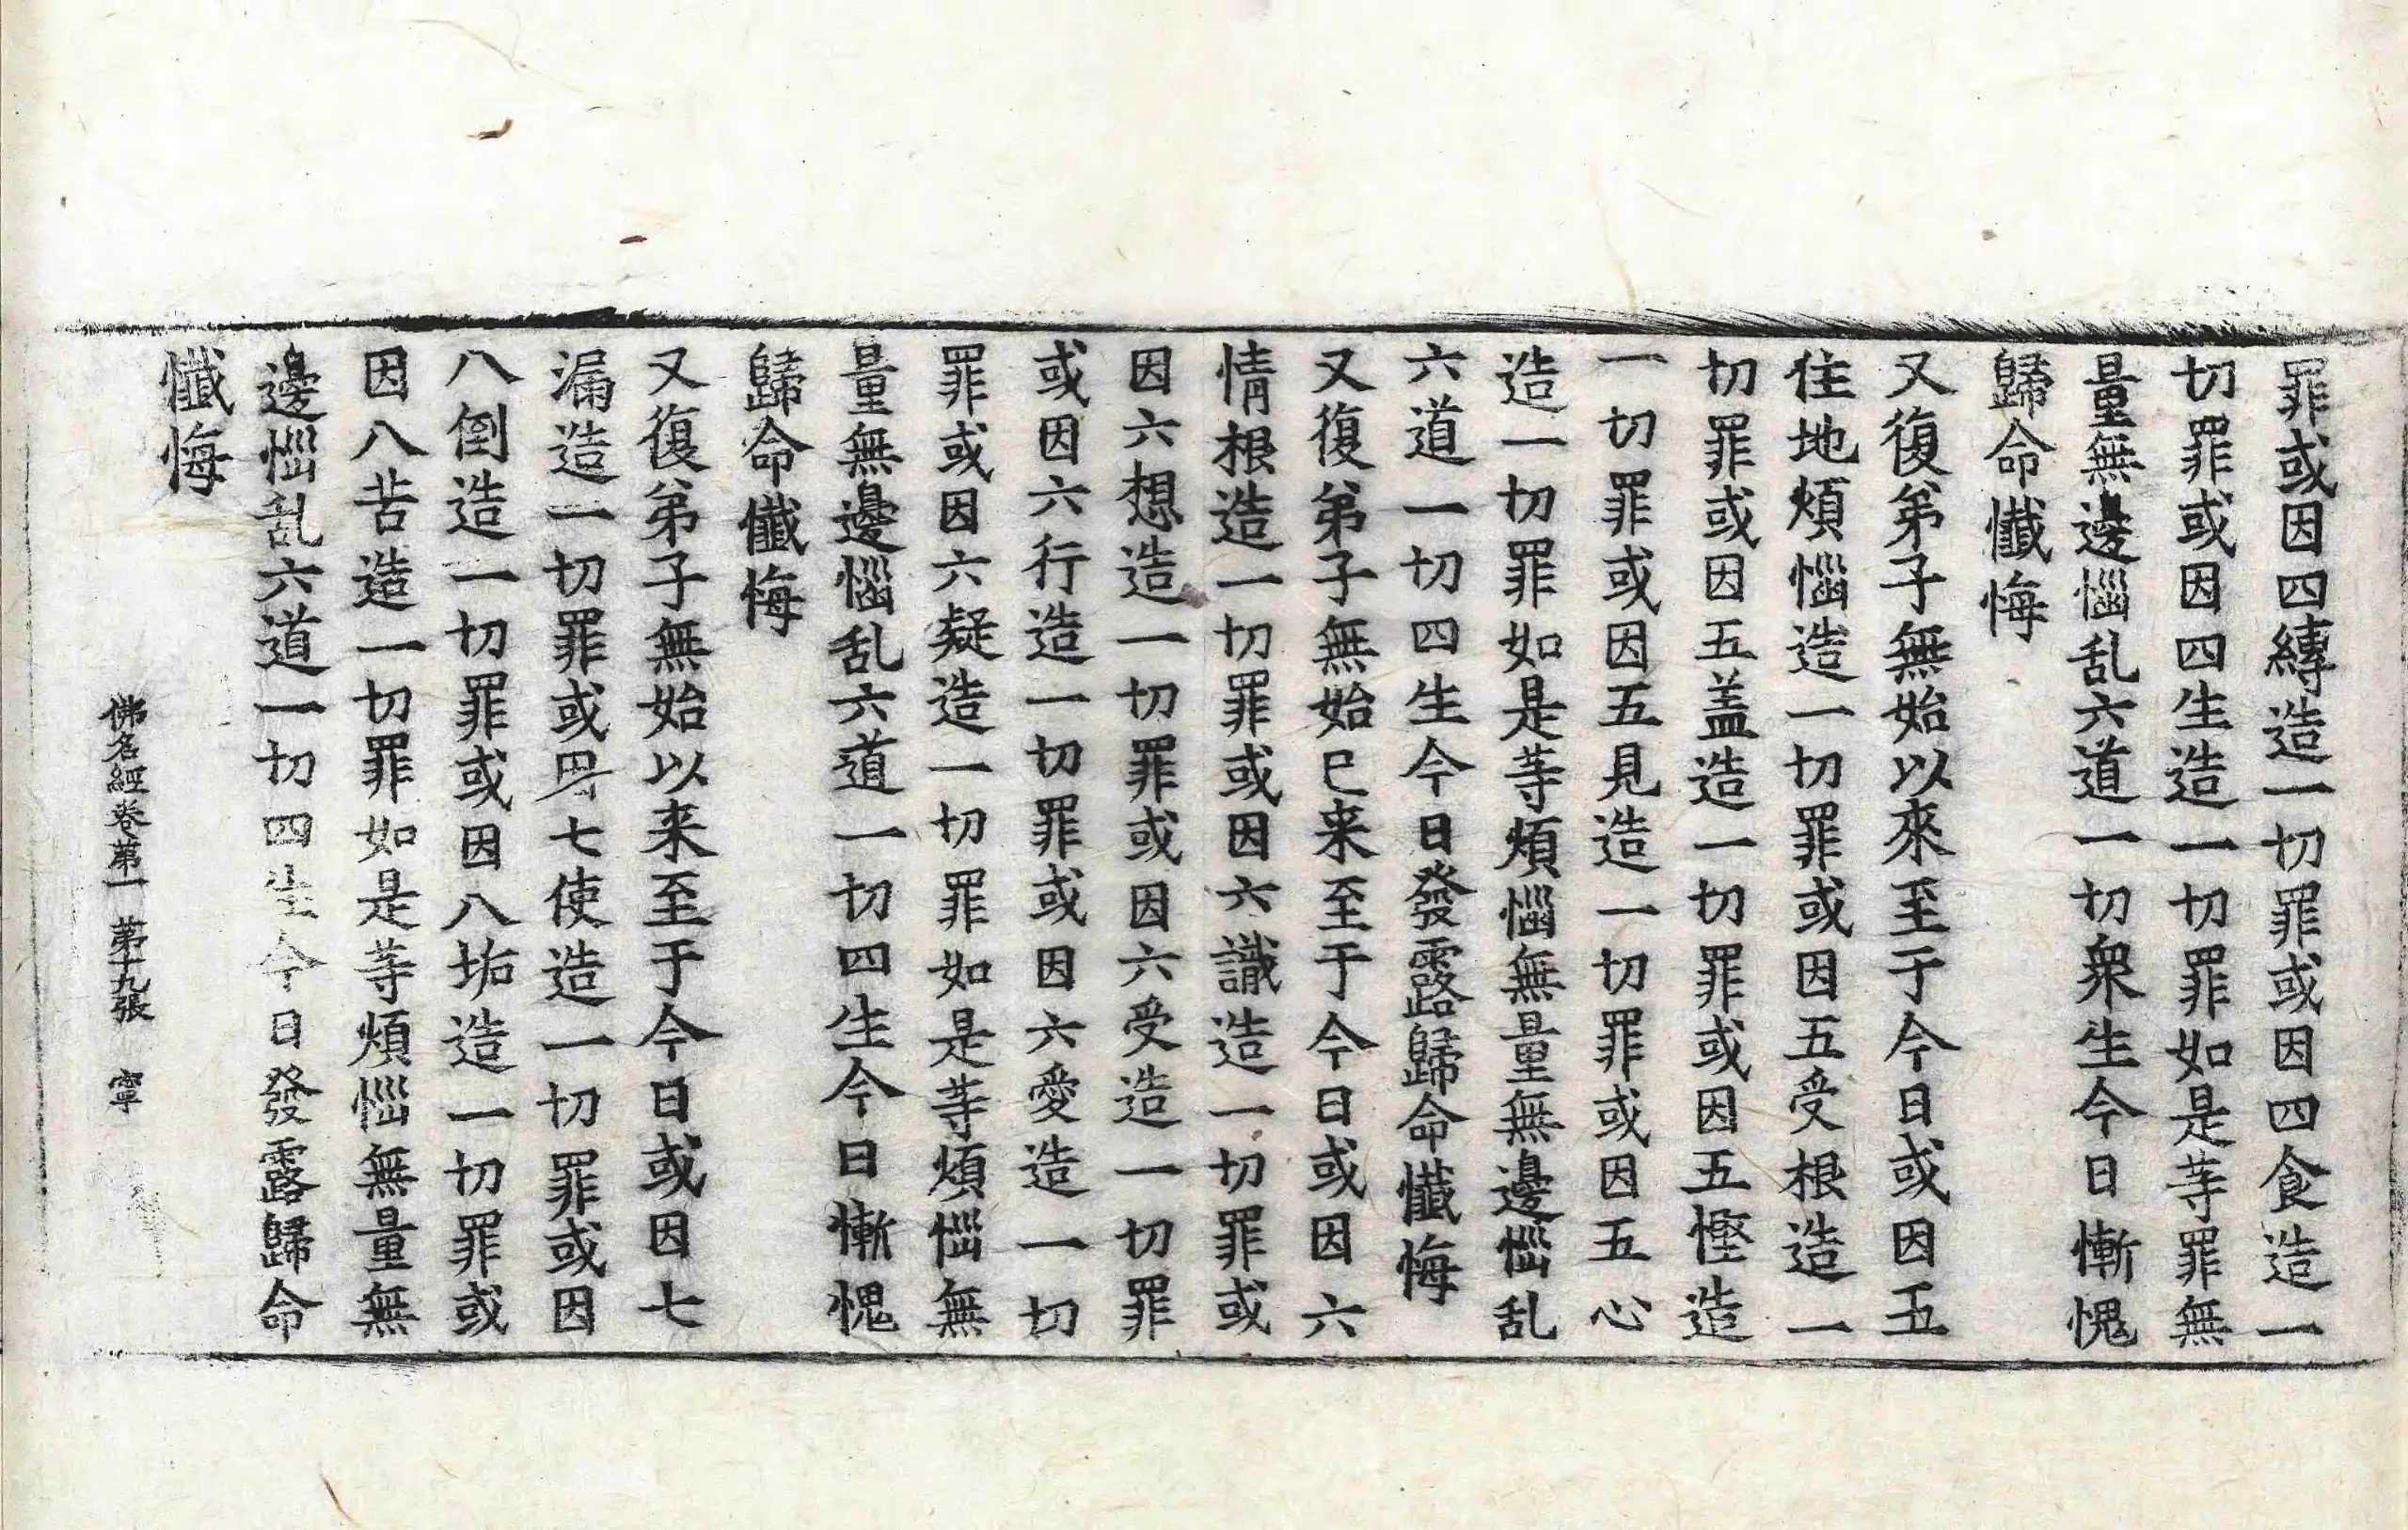 罪或因四縛造一切罪或因四食造一
切罪或因四生造一切罪如是等罪無
量無邊惱乱六道一切衆生今日慚愧
歸命懺悔
又復弟子無始以來至于今日或因五
住地煩惱造一切罪或因五受根造一
切罪或因五盖造一切罪或因五慳造
一切罪或因五見造一切罪或因五心
造一切罪如是等煩惱無量無邊惱乱
六道一切四生今日發露歸命懺悔
又復弟子無始已来至于今日或因六
情根造一切罪或因六識造一切罪或
因六想造一切罪或因六受造一切罪
或因六行造一切罪或因六愛造一切
罪或因六疑造一切罪如是等煩惱無
量無邊惱乱六道一切四生今日慚愧
歸命懺悔
又復弟子無始以来至于今日或因七
漏造一切罪或七使造一切罪或因
八倒造一切罪或因八垢造一切罪或
因八苦造一切罪如是等煩惱無量無
邊惱乱六道一切四生今日發露歸命
懺悔
佛名經卷第一 第十九張 寧